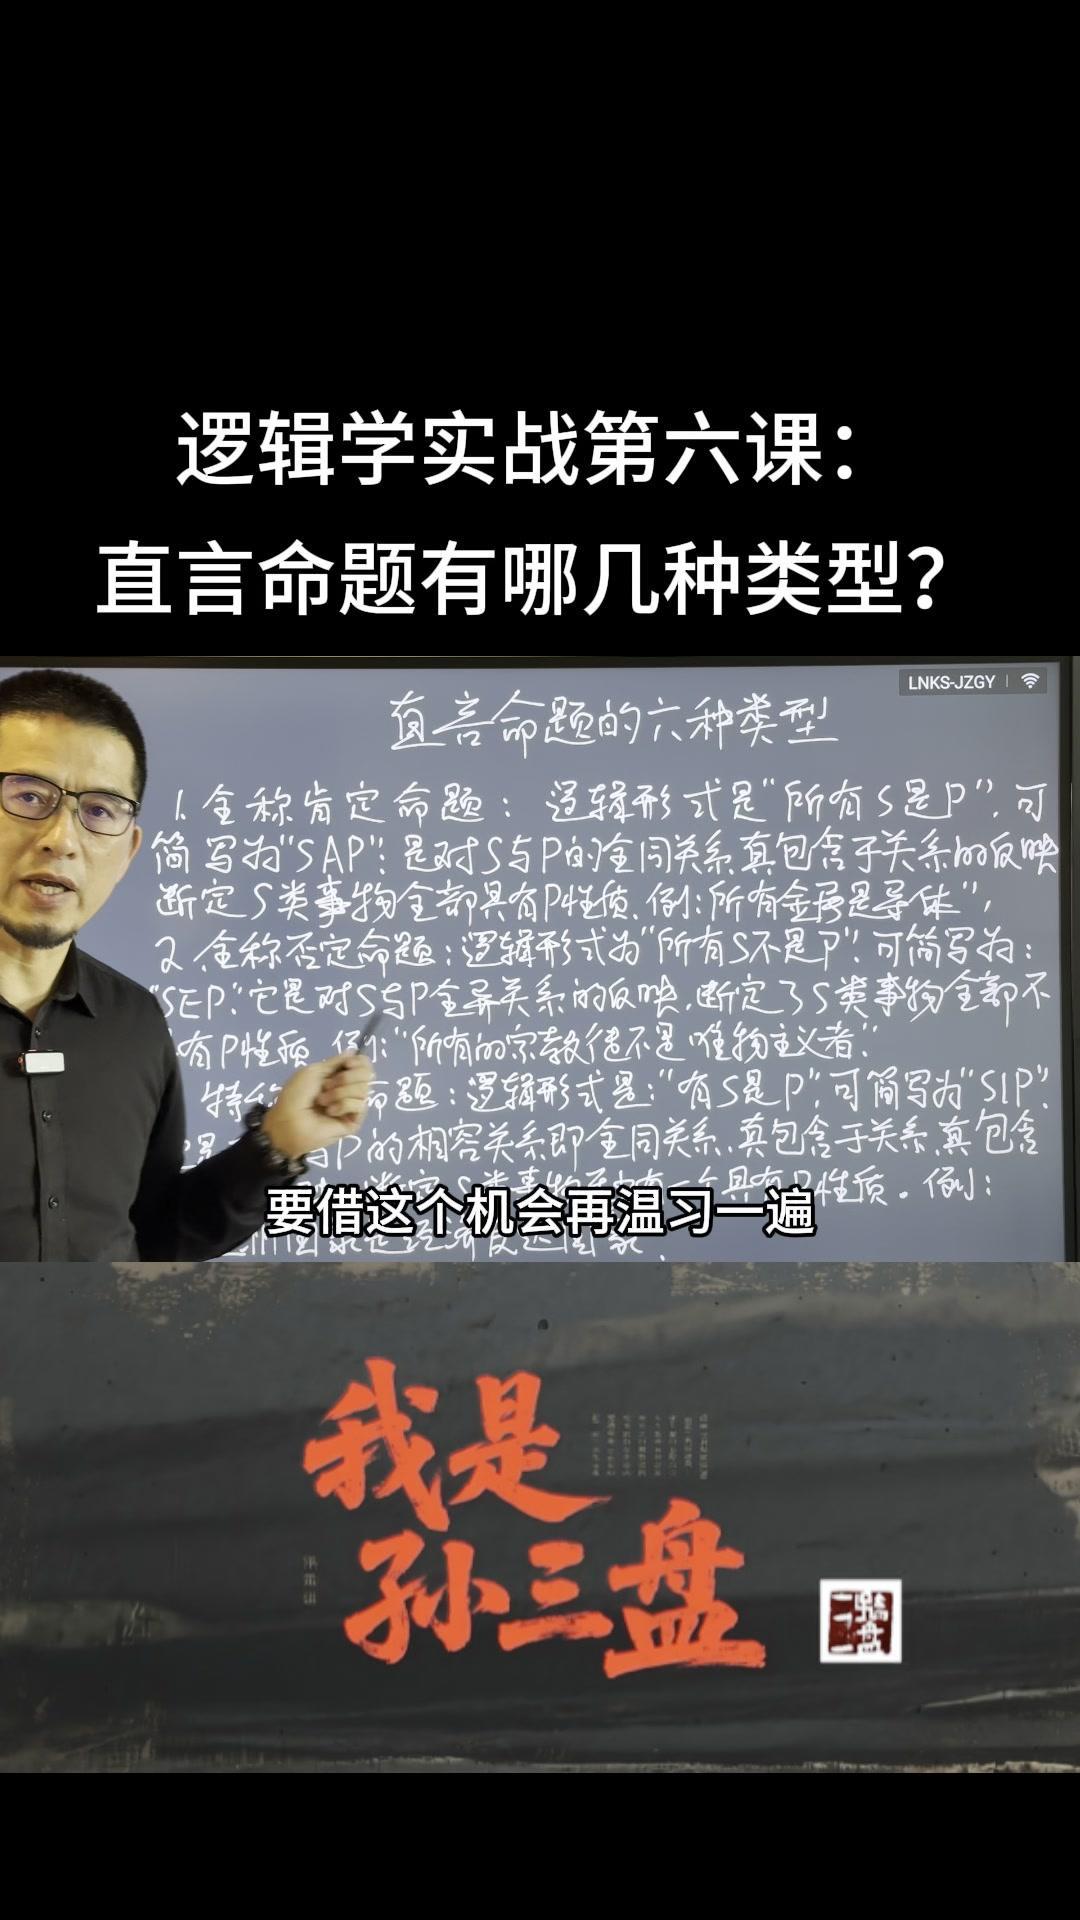 逻辑学实战第六课：
直言命题有哪几种类型？
LNKS-JZGY
直言命题的六种类型
1.全称肯定命题：逻辑形式是“所有S是P”，可
简写为“SAP”；是对S与P的全同关系、真包含于关系的反映
断定S类事物全部具有P性质，例：所有金属是导体”，
2.全称否定命题：逻辑形式为“所有S不是P”，可简写为：
“SEP”；它是对S与P全异关系的反映，断定了S类事物全部不
有P性质，例：“所有的宗教徒不是唯物主义者”
特称 命题：逻辑形式是：“有S是P”，可简写为“SIP”，
与P的相容关系即全同关系、真包含于关系、真包含
具有P性质。例：
国家是经济发达国家，
要借这个机会再温习一遍
我是
孙三盘